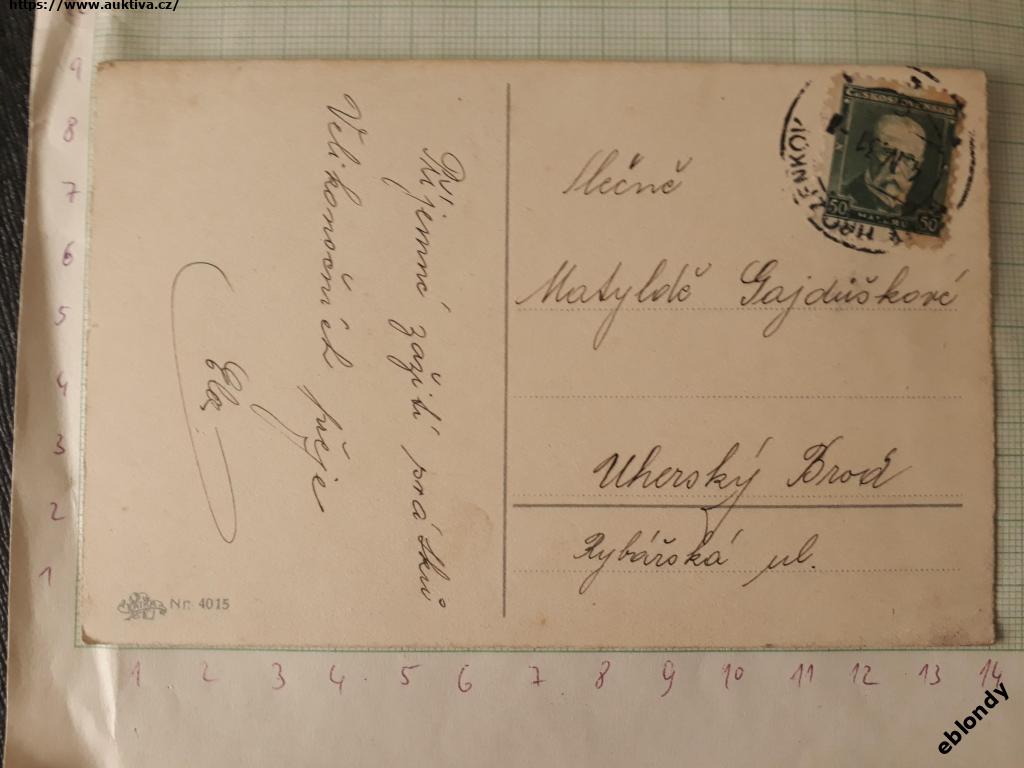 https://www.auktiva.cz/
Příjemné zažití prásků
Velikonočních přeje
Ela.
Nr. 4015
Slečně
Matyldě Gajdůškové
Uherský Brod
Rybářská ul.
ČESKOSLOVENSKO
50 50
HROZENKOV
9
8
7
6
5
4
3
2
1
1 2 3 4 5 6 7 8 9 10 11 12 13 14
eblondy